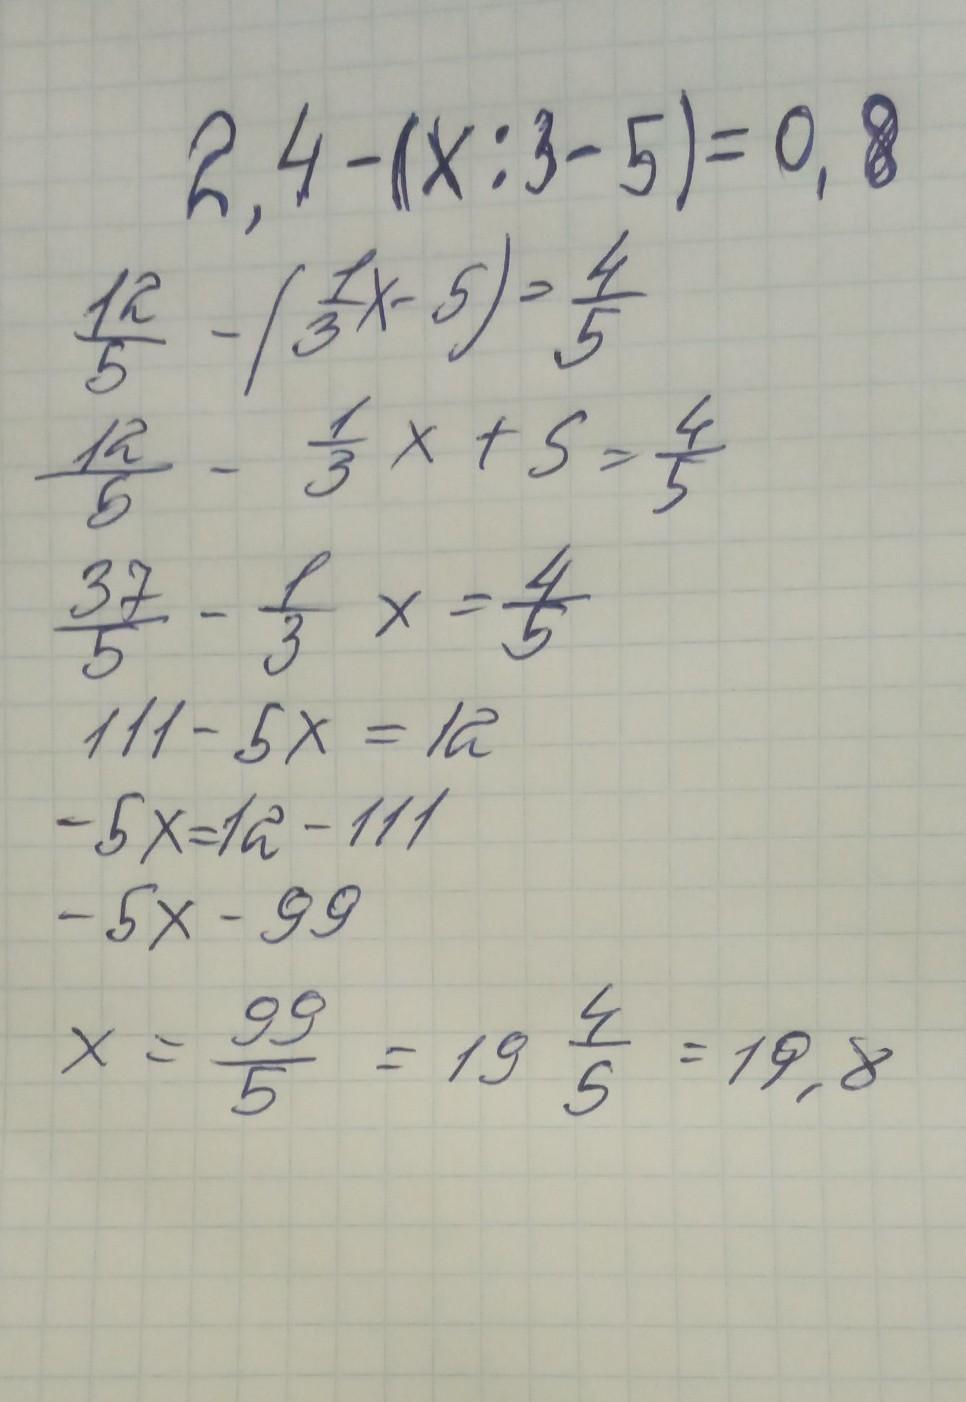 2,4-(x:3-5)=0,8
12/5 - (1/3 x - 5) = 4/5
12/5 - 1/3 x + 5 = 4/5
37/5 - 1/3 x = 4/5
111 - 5x = 12
-5x=12-111
-5x - 99
x = 99/5 = 19 4/5 = 19,8